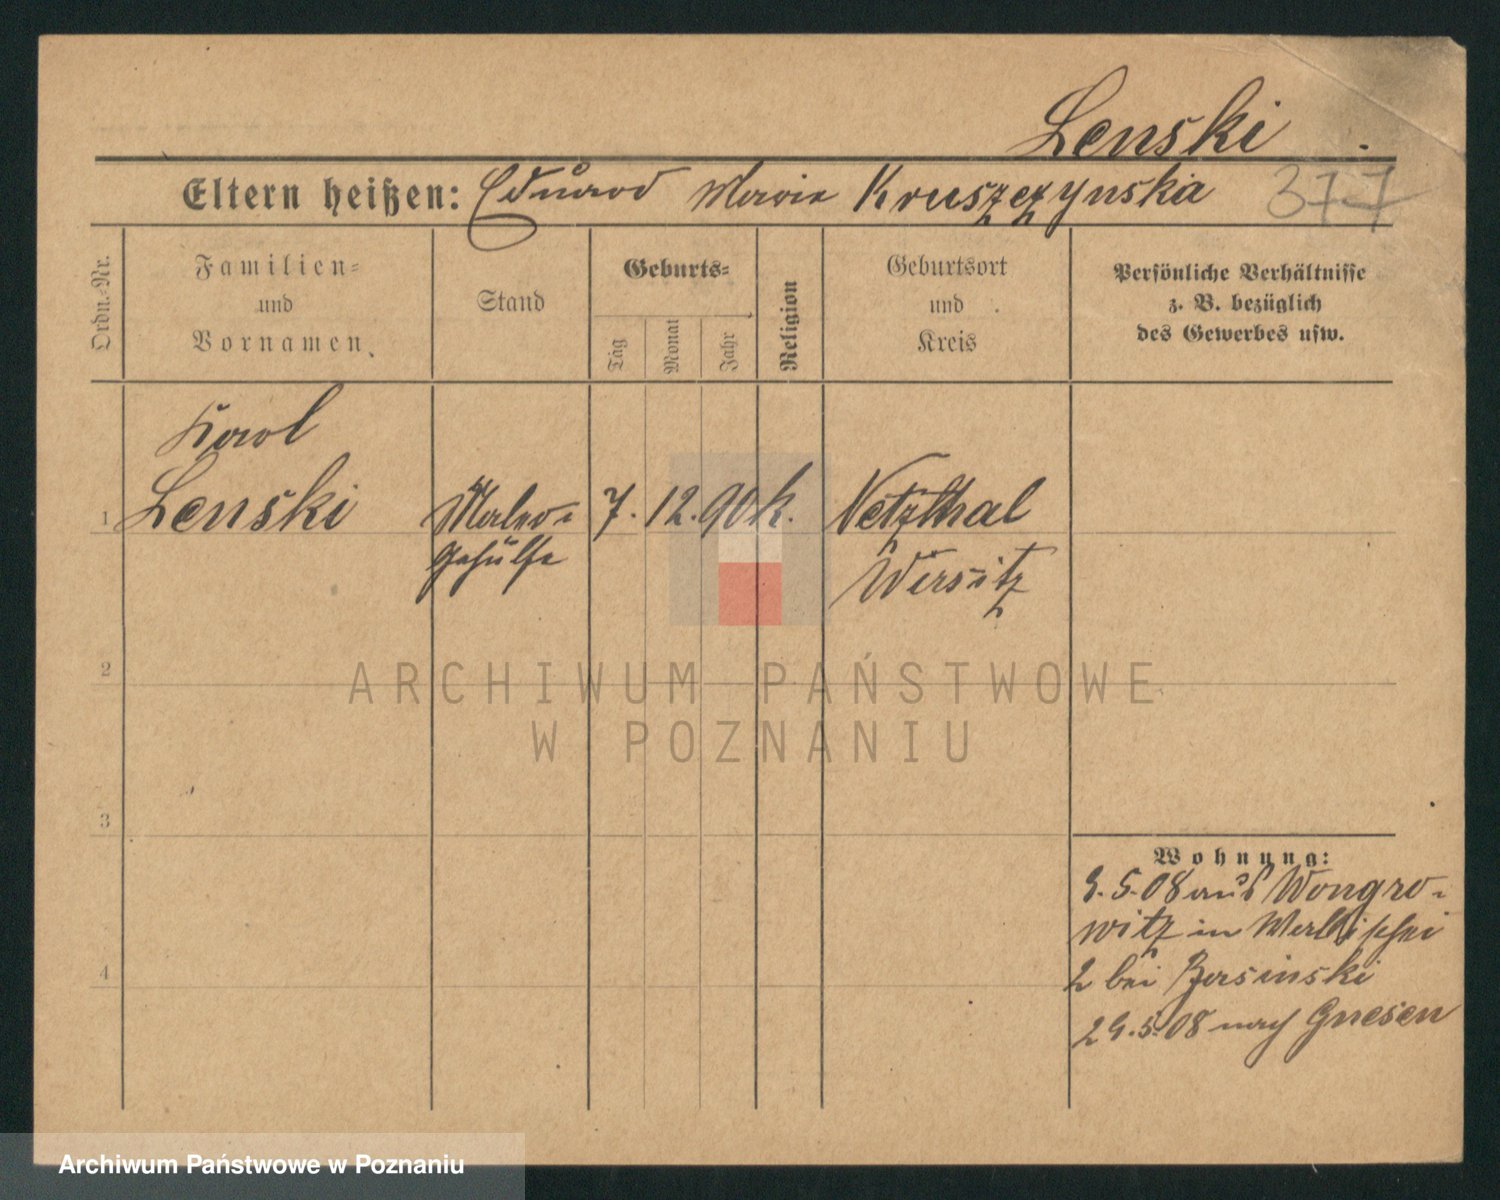 Lenski
Eltern heißen: Eduard Maria Kruszczynska 377
Ordn.-Nr.
Familien-
und
Vornamen.
Stand
Geburts-
Tag
Monat
Jahr
Religion
Geburtsort
und
Kreis
Persönliche Verhältnisse
z. B. bezüglich
des Gewerbes usw.
Karol
1 Lenski Maler- 7. 12. 90 k. Netzthal
Gehülfe Wirsitz
2
ARCHIWUM PAŃSTWOWE
W POZNANIU
3
Wohnung:
9.5.08 aus Wongro-
witz in
2 bei
4
29.5.08 nach Gnesen
Archiwum Państwowe w Poznaniu